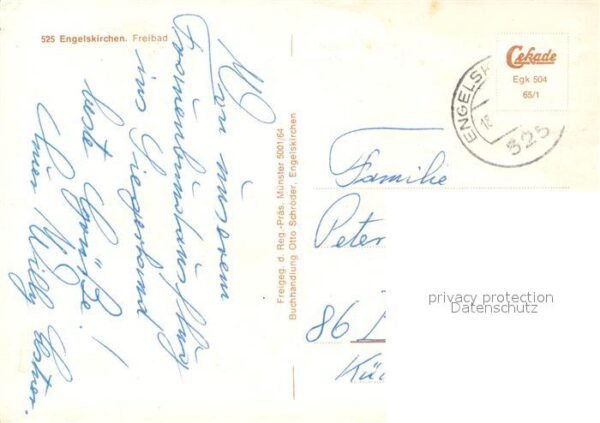 525 Engelskirchen. Freibad
Von unserem
ins Siegerland,
beste Grüße!
Willy
Freigeg. d. Reg.-Präs. Münster 5001/64
Buchhandlung Otto Schröder, Engelskirchen
Cekade
Egk 504
65/1
ENGELSK
525
Familie
Peter
86
privacy protection
Datenschutz